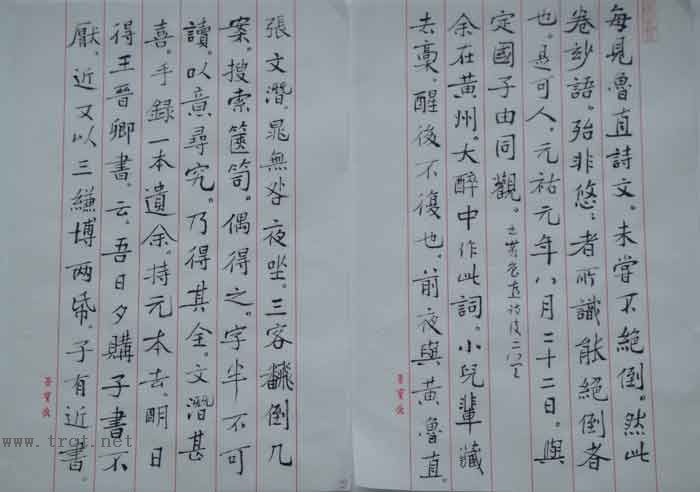 每見魯直詩文。未嘗不絕倒。然此
卷玅語。殆非悠〻者所識能絕倒者
也。是可人。元祐元年八月二十二日。與
定國子由同觀。黃魯直詩後二首
余在黃州。大醉中作此詞。小兒輩藏
去藁。醒後不復也。前夜與黃魯直。
榮寶齋
張文潛。晁無咎夜坐。三客飜倒几
案。搜索篋笥。偶得之。字半不可
讀。以意尋究。乃得其全。文潛甚
喜。手錄一本遺余。持元本去。明日
得王晉卿書。云。吾日夕購子書不
厭。近又以三縑博兩帋。子有近書。
榮寶齋
www.trqt.net